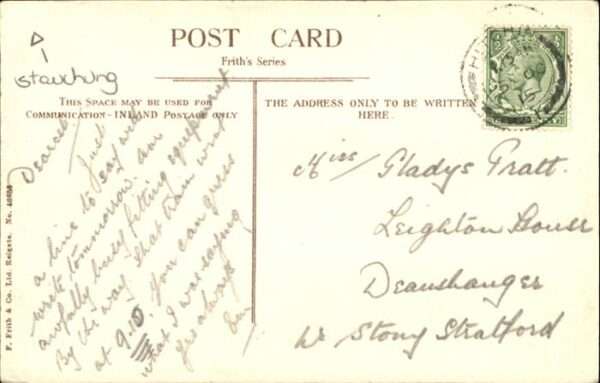 POST CARD
Frith's Series
THIS SPACE MAY BE USED FOR
COMMUNICATION - INLAND POSTAGE ONLY
THE ADDRESS ONLY TO BE WRITTEN
HERE.
Dearest
Just
a line to say will
write tommorrow. am
awfully busy fitting equipment
By the way that train went
at 9.10. You can guess
what I was saying
Yrs always
Miss Gladys Pratt.
Leighton House
Deanshanger
Nr Stony Stratford
F. Frith & Co. Ltd. Reigate. No.